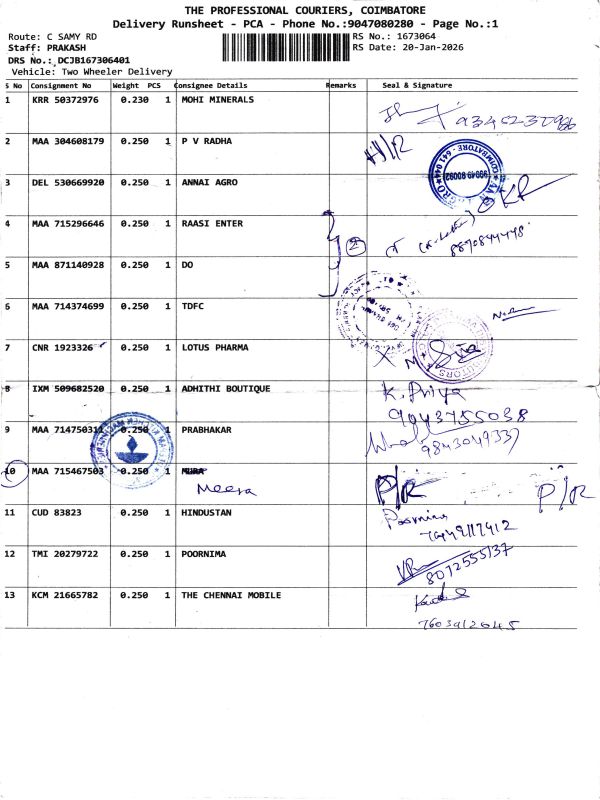 THE PROFESSIONAL COURIERS, COIMBATORE
Delivery Runsheet - PCA - Phone No.:9047080280 - Page No.:1
Route: C SAMY RD RS No.: 1673064
Staff: PRAKASH RS Date: 20-Jan-2026
DRS No.: DCJB167306401
Vehicle: Two Wheeler Delivery
S No Consignment No Weight PCS Consignee Details Remarks Seal & Signature
1 KRR 50372976 0.230 1 MOHI MINERALS
2 MAA 304608179 0.250 1 P V RADHA
COIMBATORE - 641 044
3 DEL 530669920 0.250 1 ANNAI AGRO
4 MAA 715296646 0.250 1 RAASI ENTER 2
5 MAA 871140928 0.250 1 DO
6 MAA 714374699 0.250 1 TDFC
7 CNR 1923326 0.250 1 LOTUS PHARMA
8 IXM 509682520 0.250 1 ADHITHI BOUTIQUE K. Priya
9043755038
9 MAA 714750311 0.250 1 PRABHAKAR
9843049337
10 MAA 715467503 0.250 1 MURA P/R P/R
Meera
11 CUD 83823 0.250 1 HINDUSTAN
12 TMI 20279722 0.250 1 POORNIMA
8072555137
13 KCM 21665782 0.250 1 THE CHENNAI MOBILE
7603912645